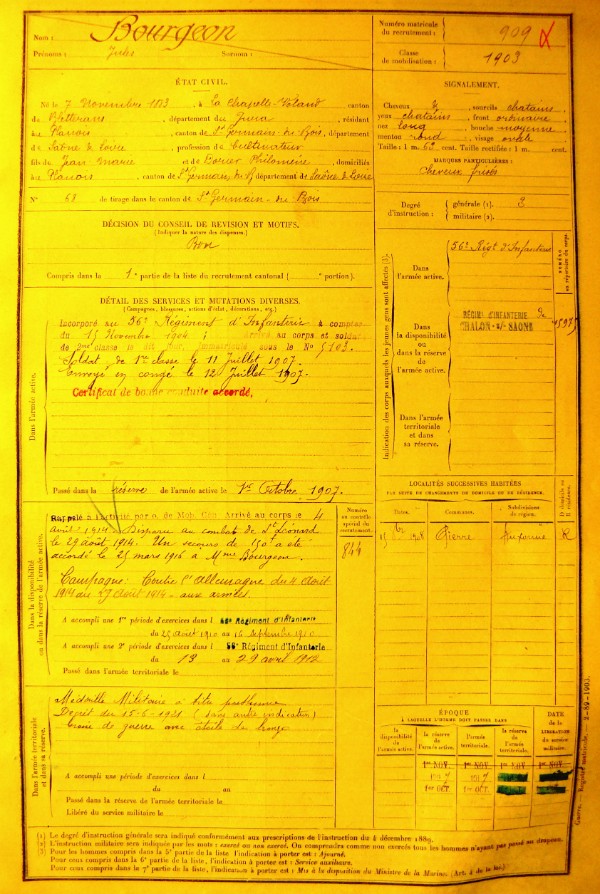 Nom : Bourgeon
Prénoms : Jules Surnoms :
Numéro matricule du recrutement : 909
Classe de mobilisation : 1903
ÉTAT CIVIL.
Né le 7 Novembre 1883, à La Chapelle-Voland, canton
de Bletterans, département du Jura, résidant
au Planois, canton de St Germain du Bois, département
de Saône et Loire, profession de Cultivateur
fils de Jean Marie et de Philomène, domiciliés
au Planois, canton de St Germain du B. département de Saône et Loire
N° 68 de tirage dans le canton de St Germain du Bois
SIGNALEMENT.
Cheveux et sourcils chatains,
yeux chatains, front ordinaire,
nez long, bouche moyenne,
menton rond, visage ovale
Taille : 1 m. cent. Taille rectifiée : 1 m. cent.
MARQUES PARTICULIÈRES :
Cheveux frisés
Degré d'instruction :
générale (1). 3
militaire (2).
DÉCISION DU CONSEIL DE REVISION ET MOTIFS.
(Indiquer la nature des dispenses.)
Bon
Compris dans la 1e partie de la liste du recrutement cantonal ( portion).
DÉTAIL DES SERVICES ET MUTATIONS DIVERSES.
(Campagnes, blessures, actions d'éclat, décorations, etc.)
Dans l'armée active.
Incorporé au 56e Régiment d'Infanterie à compter
du 15 Novembre 1904 ; arrivé au corps et soldat
de 2me classe le dit jour, immatriculé sous le N° 5103.
Soldat de 1re classe le 11 Juillet 1907.
Envoyé en congé le 12 Juillet 1907.
Certificat de bonne conduite accordé,
Passé dans la réserve de l'armée active le 1er Octobre 1907.
Indication des corps auxquels les jeunes gens sont affectés (3).
NUMÉRO au répertoire du corps
Dans l'armée active.
56e Régt d'Infanterie
Dans la disponibilité ou dans la réserve de l'armée active.
RÉGIMT D'INFANTERIE
CHALON-s/-SAONE
Dans l'armée territoriale et dans sa réserve.
Dans la disponibilité ou dans la réserve de l'armée active.
Rappelé à l'activité par o. de Mob. Gén. Arrivé au corps le 4
août 1914. Disparu au combat de St Léonard
le 29 août 1914. Un secours de 150f a été
accordé le 25 mars 1916 à Mme Bourgeon.
Campagne : Contre l'Allemagne du 4 Août
1914 au 27 Août 1914 - aux armées
Numéro au contrôle spécial du recrutement.
844
A accompli une 1re période d'exercices dans l Régiment d'Infanterie
du 25 août 1910 au 16 septembre 1910
A accompli une 2e période d'exercices dans l 56e Régiment d'Infanterie
du 13 au 29 avril 1912
Passé dans l'armée territoriale le
LOCALITÉS SUCCESSIVES HABITÉES
PAR SUITE DE CHANGEMENTS DE DOMICILE OU DE RÉSIDENCE.
Dates. Communes. Subdivisions de région. D domicile ou R résidence
1908 Pierre Auxonne R
Dans l'armée territoriale et dans sa réserve.
Médaille Militaire à titre posthume
Décret du 15-6-1921 (sans autre indication)
Croix de guerre avec étoile de bronze
A accompli une période d'exercices dans l
du au
Passé dans la réserve de l'armée territoriale le
Libéré du service militaire le
ÉPOQUE
À LAQUELLE L'HOMME DOIT PASSER DANS
DATE de la LIBÉRATION du service militaire.
la disponibilité de l'armée active.
la réserve de l'armée active.
l'armée territoriale.
la réserve de l'armée territoriale.
1er NOV. 1er NOV. 1er NOV. 1er NOV.
1er OCT. 1er OCT.
(1) Le degré d'instruction générale sera indiqué conformément aux prescriptions de l'instruction du 4 décembre 1889.
(2) L'instruction militaire sera indiquée par les mots : exercé ou non exercé. On comprendra comme non exercés tous les hommes n'ayant pas passé au drapeau.
(3) Pour les hommes compris dans la 5e partie de la liste, l'indication à porter est : Ajourné.
Pour ceux compris dans la 6e partie de la liste, l'indication à porter est : Service auxiliaire.
Pour ceux compris dans la 7e partie de la liste, l'indication à porter est : Mis à la disposition du Ministre de la Marine (Art. 4 de la loi).